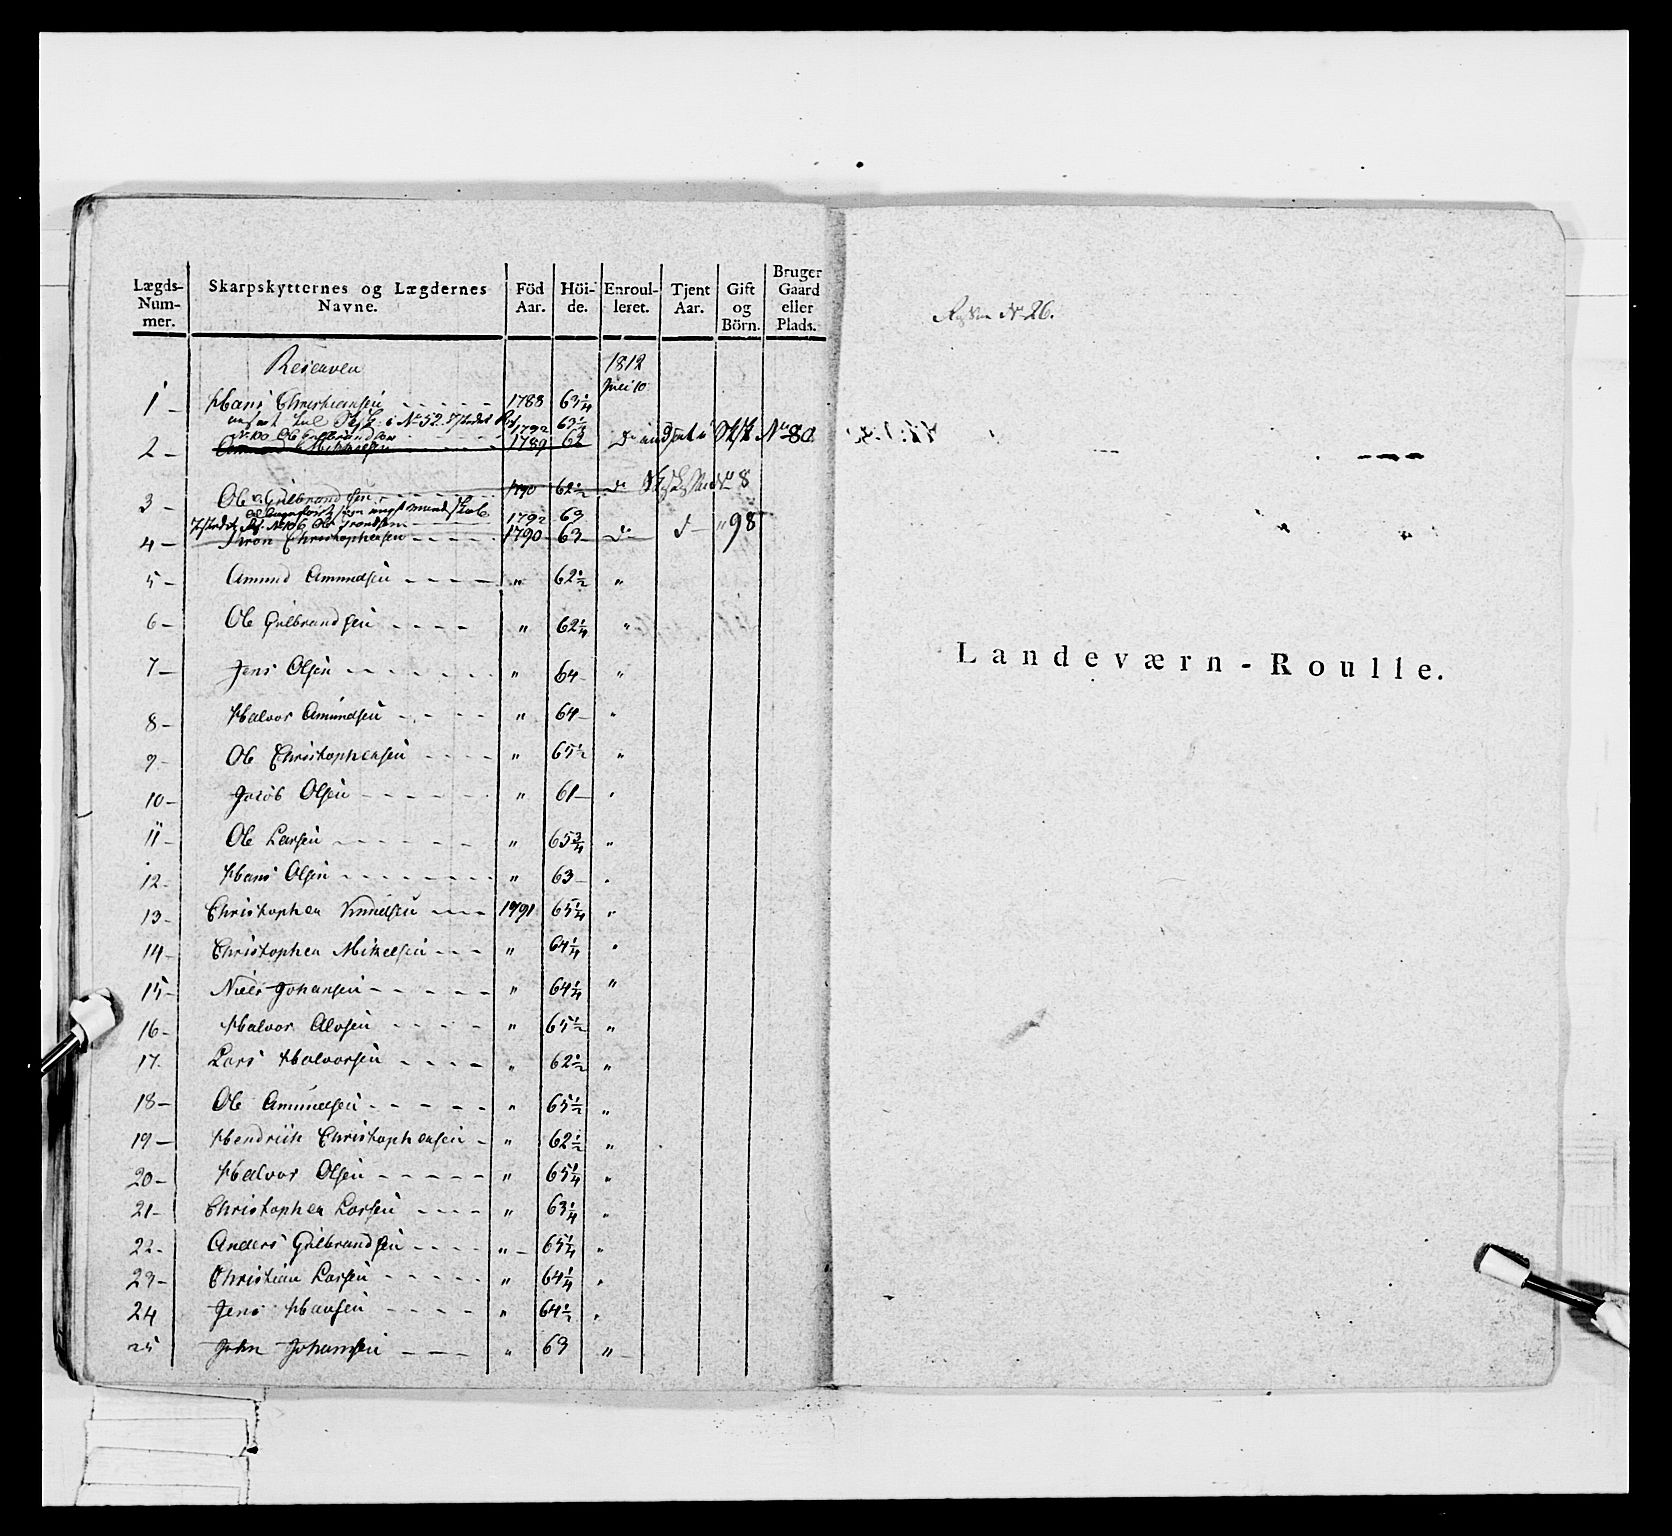 Lægds-Num-mer. Skarpskytternes og Lægdernes Navne. Föd Aar. Höi-de. Enroul-leret. Tjent Aar. Gift og Börn. Bruger Gaard eller Plads.
Reserven 1812
Juli 10
1 – Hans Christiansen - - - - - 1788 63 1/4
1792 63 1/2
No 100 Ole Gulbrandsen
2 – Amund Mikkelsen 1789 62 Do No 80
3 – Ole Gulbrandsen - - - - 1790 62 1/2 Do No 8
1792 63
4 – Iwon Christophersen - - - - 1790 63 – Do d – " 98
5 – Amund Amundsen - - - - " 62 1/2 "
6 – Ole Gulbrandsen - - - - " 62 1/4 "
7 – Jens Olsen - - - - - - " 64 – "
8 – Halvor Amundsen - - - - " 64 – "
9 - Ole Christophersen - - - - " 65 1/2 "
10 – Jacob Olsen - - - - - - " 61 – "
11 – Ole Larsen - - - - - - " 65 3/4 "
12 - Hans Olsen - - - - - - " 63 – "
13 - Christopher Knudsen - - - 1791 65 1/4 "
14 – Christopher Mikelsen - - - " 64 1/4 "
15 – Niels Johansen - - - - - " 64 1/4 "
16 - Halvor Alvsen - - - - " 65 1/2 "
17. Lars Halvorsen - - - - " 62 1/2 "
18 – Ole Amundsen - - - - - " 65 1/2 "
19 – Hendrich Christophersen - " 62 1/2 "
20 – Halvor Olsen - - - - - " 65 1/4 "
21 – Christopher Larsen - - - - " 63 1/4 "
22 - Anders Gulbrandsen - - - - " – 65 1/4 "
23 – Christian Larsen - - - - - " 64 1/4 "
24 Jens Hansen - - - - " 64 1/2 "
25 John Johansen - - - " 63 " –
No 26.
Landeværn-Roulle.